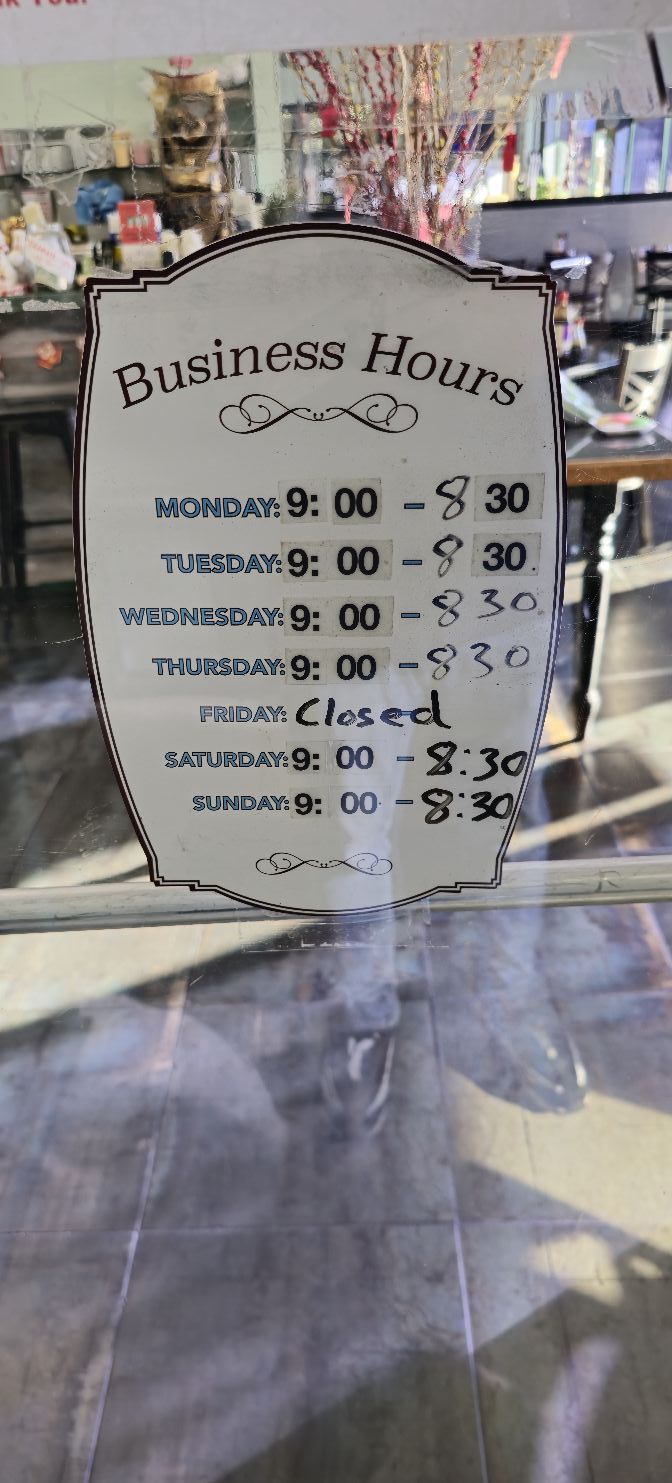 Business Hours
MONDAY: 9: 00 - 8 30
TUESDAY: 9: 00 - 8 30
WEDNESDAY: 9: 00 - 8 30
THURSDAY: 9: 00 - 8 30
FRIDAY: Closed
SATURDAY: 9: 00 - 8:30
SUNDAY: 9: 00 - 8:30